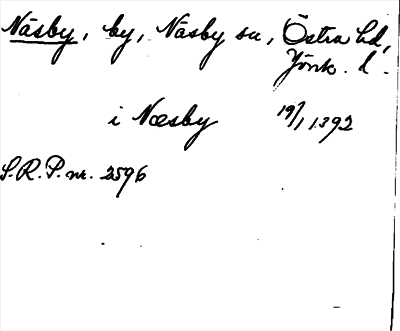 Näsby, by, Näsby sn, Östra hd,
Jönk. l.
i Næsby 19/1 1392
S.R.P. nr. 2596